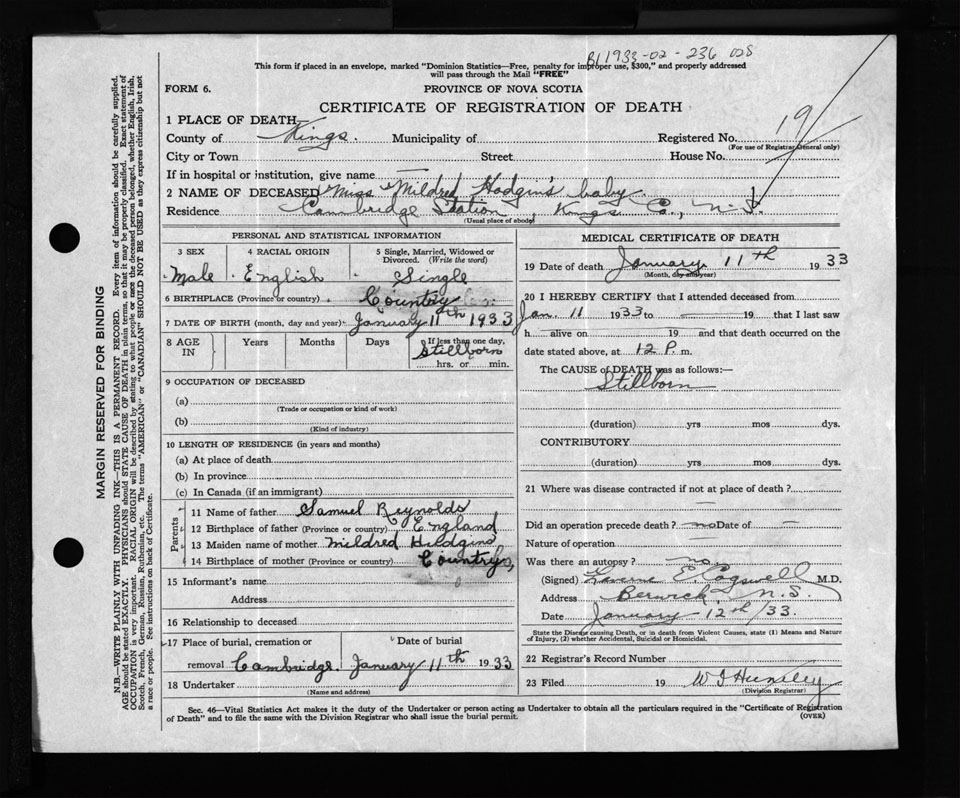 B11933-02-236 028
This form if placed in an envelope, marked "Dominion Statistics—Free, penalty for improper use, $300," and properly addressed
will pass through the Mail "FREE"
FORM 6.
PROVINCE OF NOVA SCOTIA
CERTIFICATE OF REGISTRATION OF DEATH
1 PLACE OF DEATH
County of Kings. Municipality of Registered No. 19
(For use of Registrar General only)
City or Town Street House No.
If in hospital or institution, give name —
2 NAME OF DECEASED Miss Mildred Hodgin's baby
Residence Cambridge Station, Kings Co., N.S.
(Usual place of abode)
PERSONAL AND STATISTICAL INFORMATION
3 SEX 4 RACIAL ORIGIN 5 Single, Married, Widowed or
Divorced. (Write the word)
Male English Single
6 BIRTHPLACE (Province or country) Country
7 DATE OF BIRTH (month, day and year) January 11th 1933
8 AGE IN Years Months Days If less than one day,
Stillborn
hrs. or min.
9 OCCUPATION OF DECEASED
(a)
(Trade or occupation or kind of work)
(b)
(Kind of industry)
10 LENGTH OF RESIDENCE (in years and months)
(a) At place of death
(b) In province
(c) In Canada (if an immigrant)
Parents
11 Name of father Samuel Reynolds
12 Birthplace of father (Province or country) England
13 Maiden name of mother Mildred Hildgins
14 Birthplace of mother (Province or country) Country
15 Informant's name
Address
16 Relationship to deceased
17 Place of burial, cremation or Date of burial
removal Cambridge. January 11th 1933
18 Undertaker
(Name and address)
MEDICAL CERTIFICATE OF DEATH
19 Date of death January 11th 1933
(Month, day and year)
20 I HEREBY CERTIFY that I attended deceased from
Jan. 11 1933 to — 19 that I last saw
h alive on 19 and that death occurred on the
date stated above, at 12 P. m.
The CAUSE of DEATH was as follows:—
Stillborn
(duration) yrs mos dys.
CONTRIBUTORY
(duration) yrs mos dys.
21 Where was disease contracted if not at place of death?
—
Did an operation precede death? no Date of —
Nature of operation —
Was there an autopsy? no
(Signed) E. Cogswell M.D.
Address Berwick, N.S.
Date January 12th/33.
State the Disease causing Death, or in death from Violent Causes, state (1) Means and Nature
of Injury, (2) whether Accidental, Suicidal or Homicidal.
22 Registrar's Record Number
23 Filed 19
(Division Registrar)
Sec. 46—Vital Statistics Act makes it the duty of the Undertaker or person acting as Undertaker to obtain all the particulars required in the "Certificate of Registration
of Death" and to file the same with the Division Registrar who shall issue the burial permit.
(OVER)
MARGIN RESERVED FOR BINDING
N.B.—WRITE PLAINLY WITH UNFADING INK—THIS IS A PERMANENT RECORD. Every item of information should be carefully supplied.
AGE should be stated EXACTLY. PHYSICIANS should STATE CAUSE OF DEATH in plain terms, so that it may be properly classified. Exact statement of
OCCUPATION is very important. RACIAL ORIGIN will be described by stating to what people or race the deceased person belonged, whether English, Irish,
Scotch, French, German, Russian, Ruthenian, etc. The terms "AMERICAN" or "CANADIAN" SHOULD NOT BE USED as they express citizenship but not
a race or people. See instructions on back of Certificate.